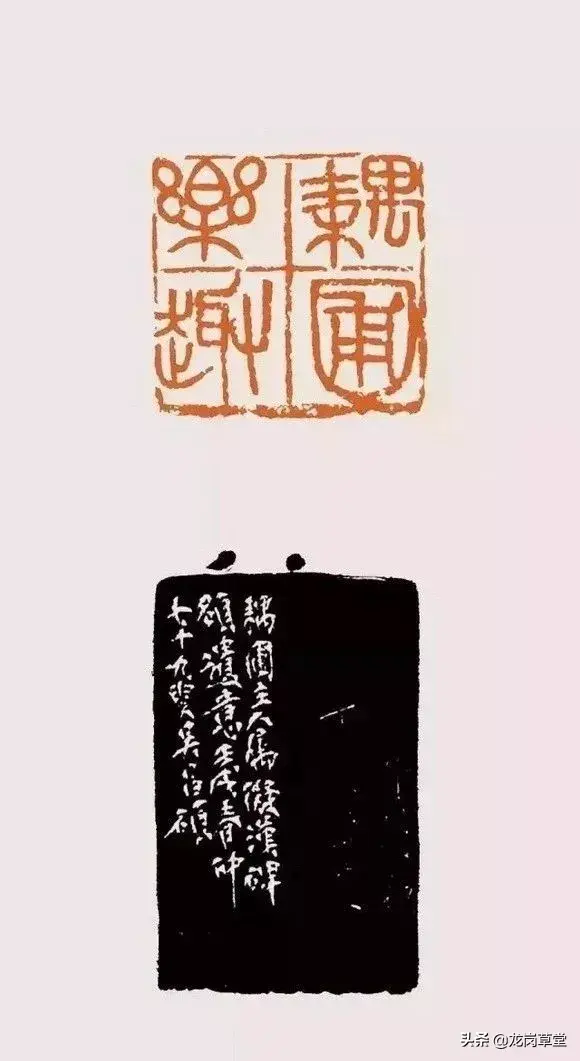 耦圃
樂趣
耦圃主人屬擬漢碑
額遺意壬戌春仲
七十九叟吳昌碩
头条 @龙岗草堂